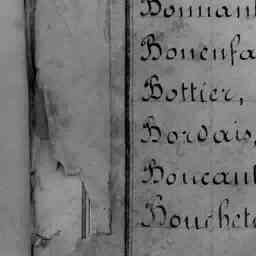 Bonnant
Bonenfa
Bottier,
Bordais,
Boucaul
Bouchet